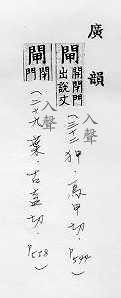 廣韻
閘 開閉門出說文
入聲
(三十二狎.烏甲切.P544)
閘 閉門
入聲
(二十九葉.古盍切.P538)